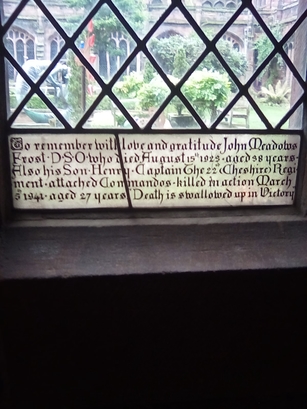 To remember with love and gratitude John Meadows
Frost·D·S·O·who died August 15th 1923·aged 38 years·
Also his Son·Henry·Captain The 22nd Cheshire Regi
ment·attached Commandos·killed in action March
5 1941·aged 27 years·Death is swallowed up in Victory